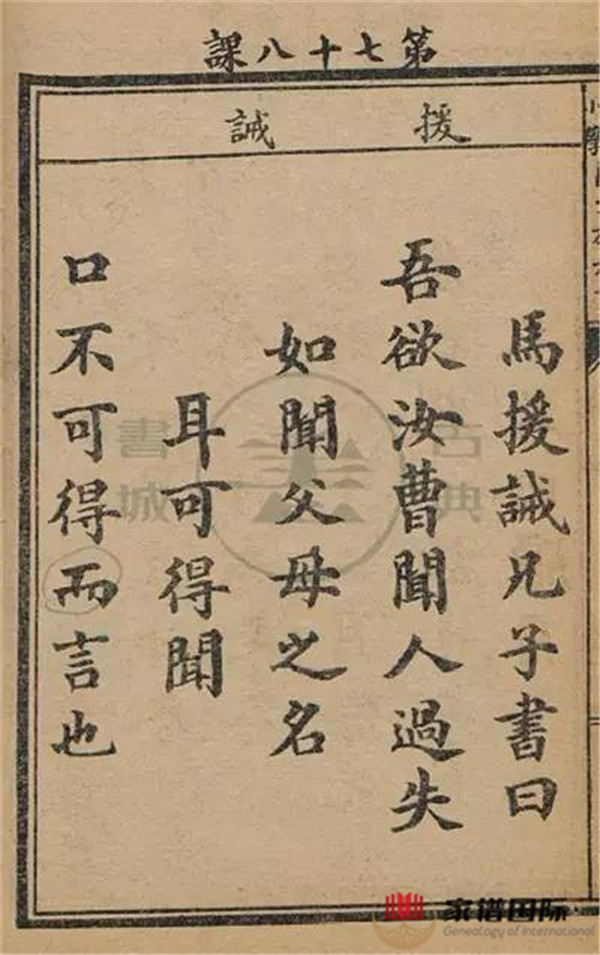 第七十八課
援誡
馬援誡兄子書曰
吾欲汝曹聞人過失
如聞父母之名
耳可得聞
口不可得而言也
古典
書城
家谱国际
Genealogy of International